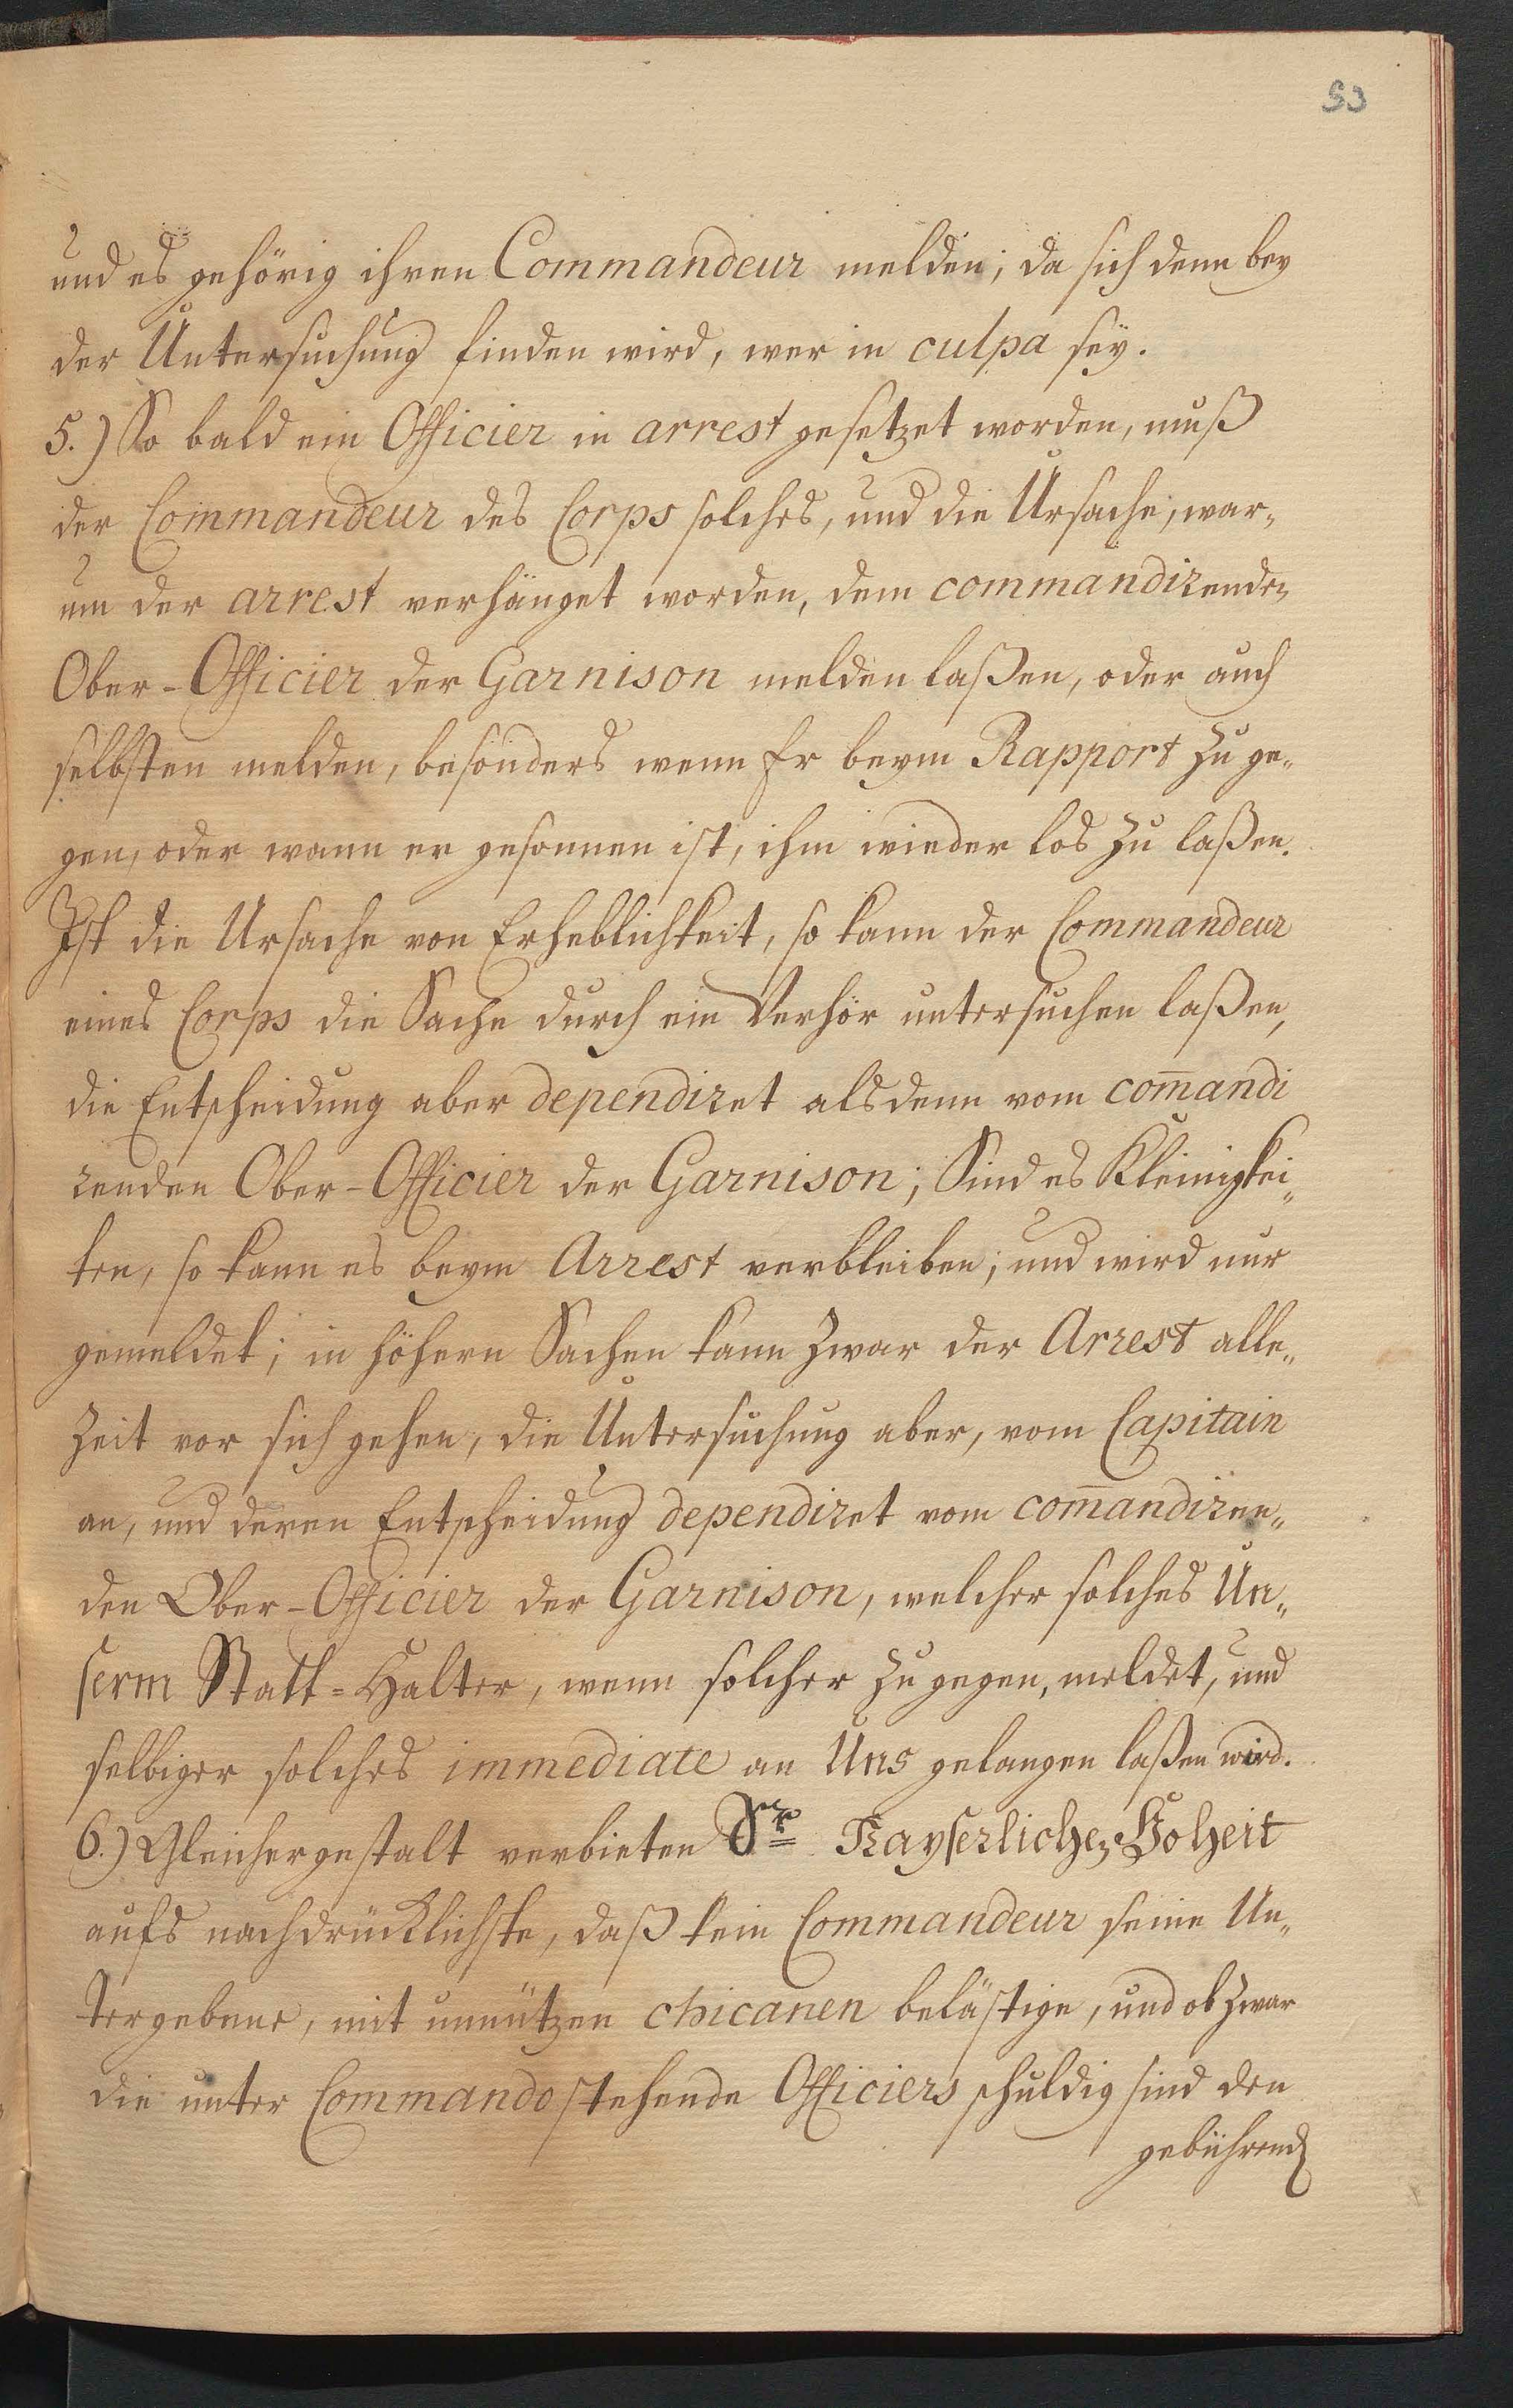 53
und es gehörig ihren Commandeur melden; da sich denn bey
der Untersuchung finden wird, wer in culpa seÿ.
5.) So bald ein Officier in arrest gesetzet worden, muß
der Commandeur des Corps solches, und die Ursache, war„
um der arrest verhänget worden, dem commandirenden
Ober-Officier der Garnison melden laßen, oder auch
selbsten melden, besonders wenn Er beym Rapport zu ge„
gen, oder wann er gesonnen ist, ihm wieder los zu laßen.
Ist die Ursache von Erheblichkeit, so kann der Commandeur
eines Corps die Sache durch ein Verhör untersuchen laßen,
die Entscheidung aber dependiret alsdenn vom com̄andi
renden Ober-Officier der Garnison; Sind es Kleinigkei„
ten, so kann es beym Arrest verbleiben; und wird nur
gemeldet; in höhern Sachen kann zwar der Arrest alle„
Zeit vor sich gehen, die Untersuchung aber, vom Capitain
an, und deren Entscheidung dependiret vom com̄andiren„
den Ober-Officier der Garnison, welcher solches Un„
serm Statt=Halter, wenn solcher zu gegen, meldet, und
selbiger solches immediate an Uns gelangen laßen wird.
6.) Gleichergestalt verbieten Sr. Kayserliche Hoheit
aufs nachdrücklichste, daß kein Commandeur seine Un„
tergebene, mit unnützen chicanen belästige, und ob zwar
die unter Commando stehende Officiers schuldig sind den
gebührend